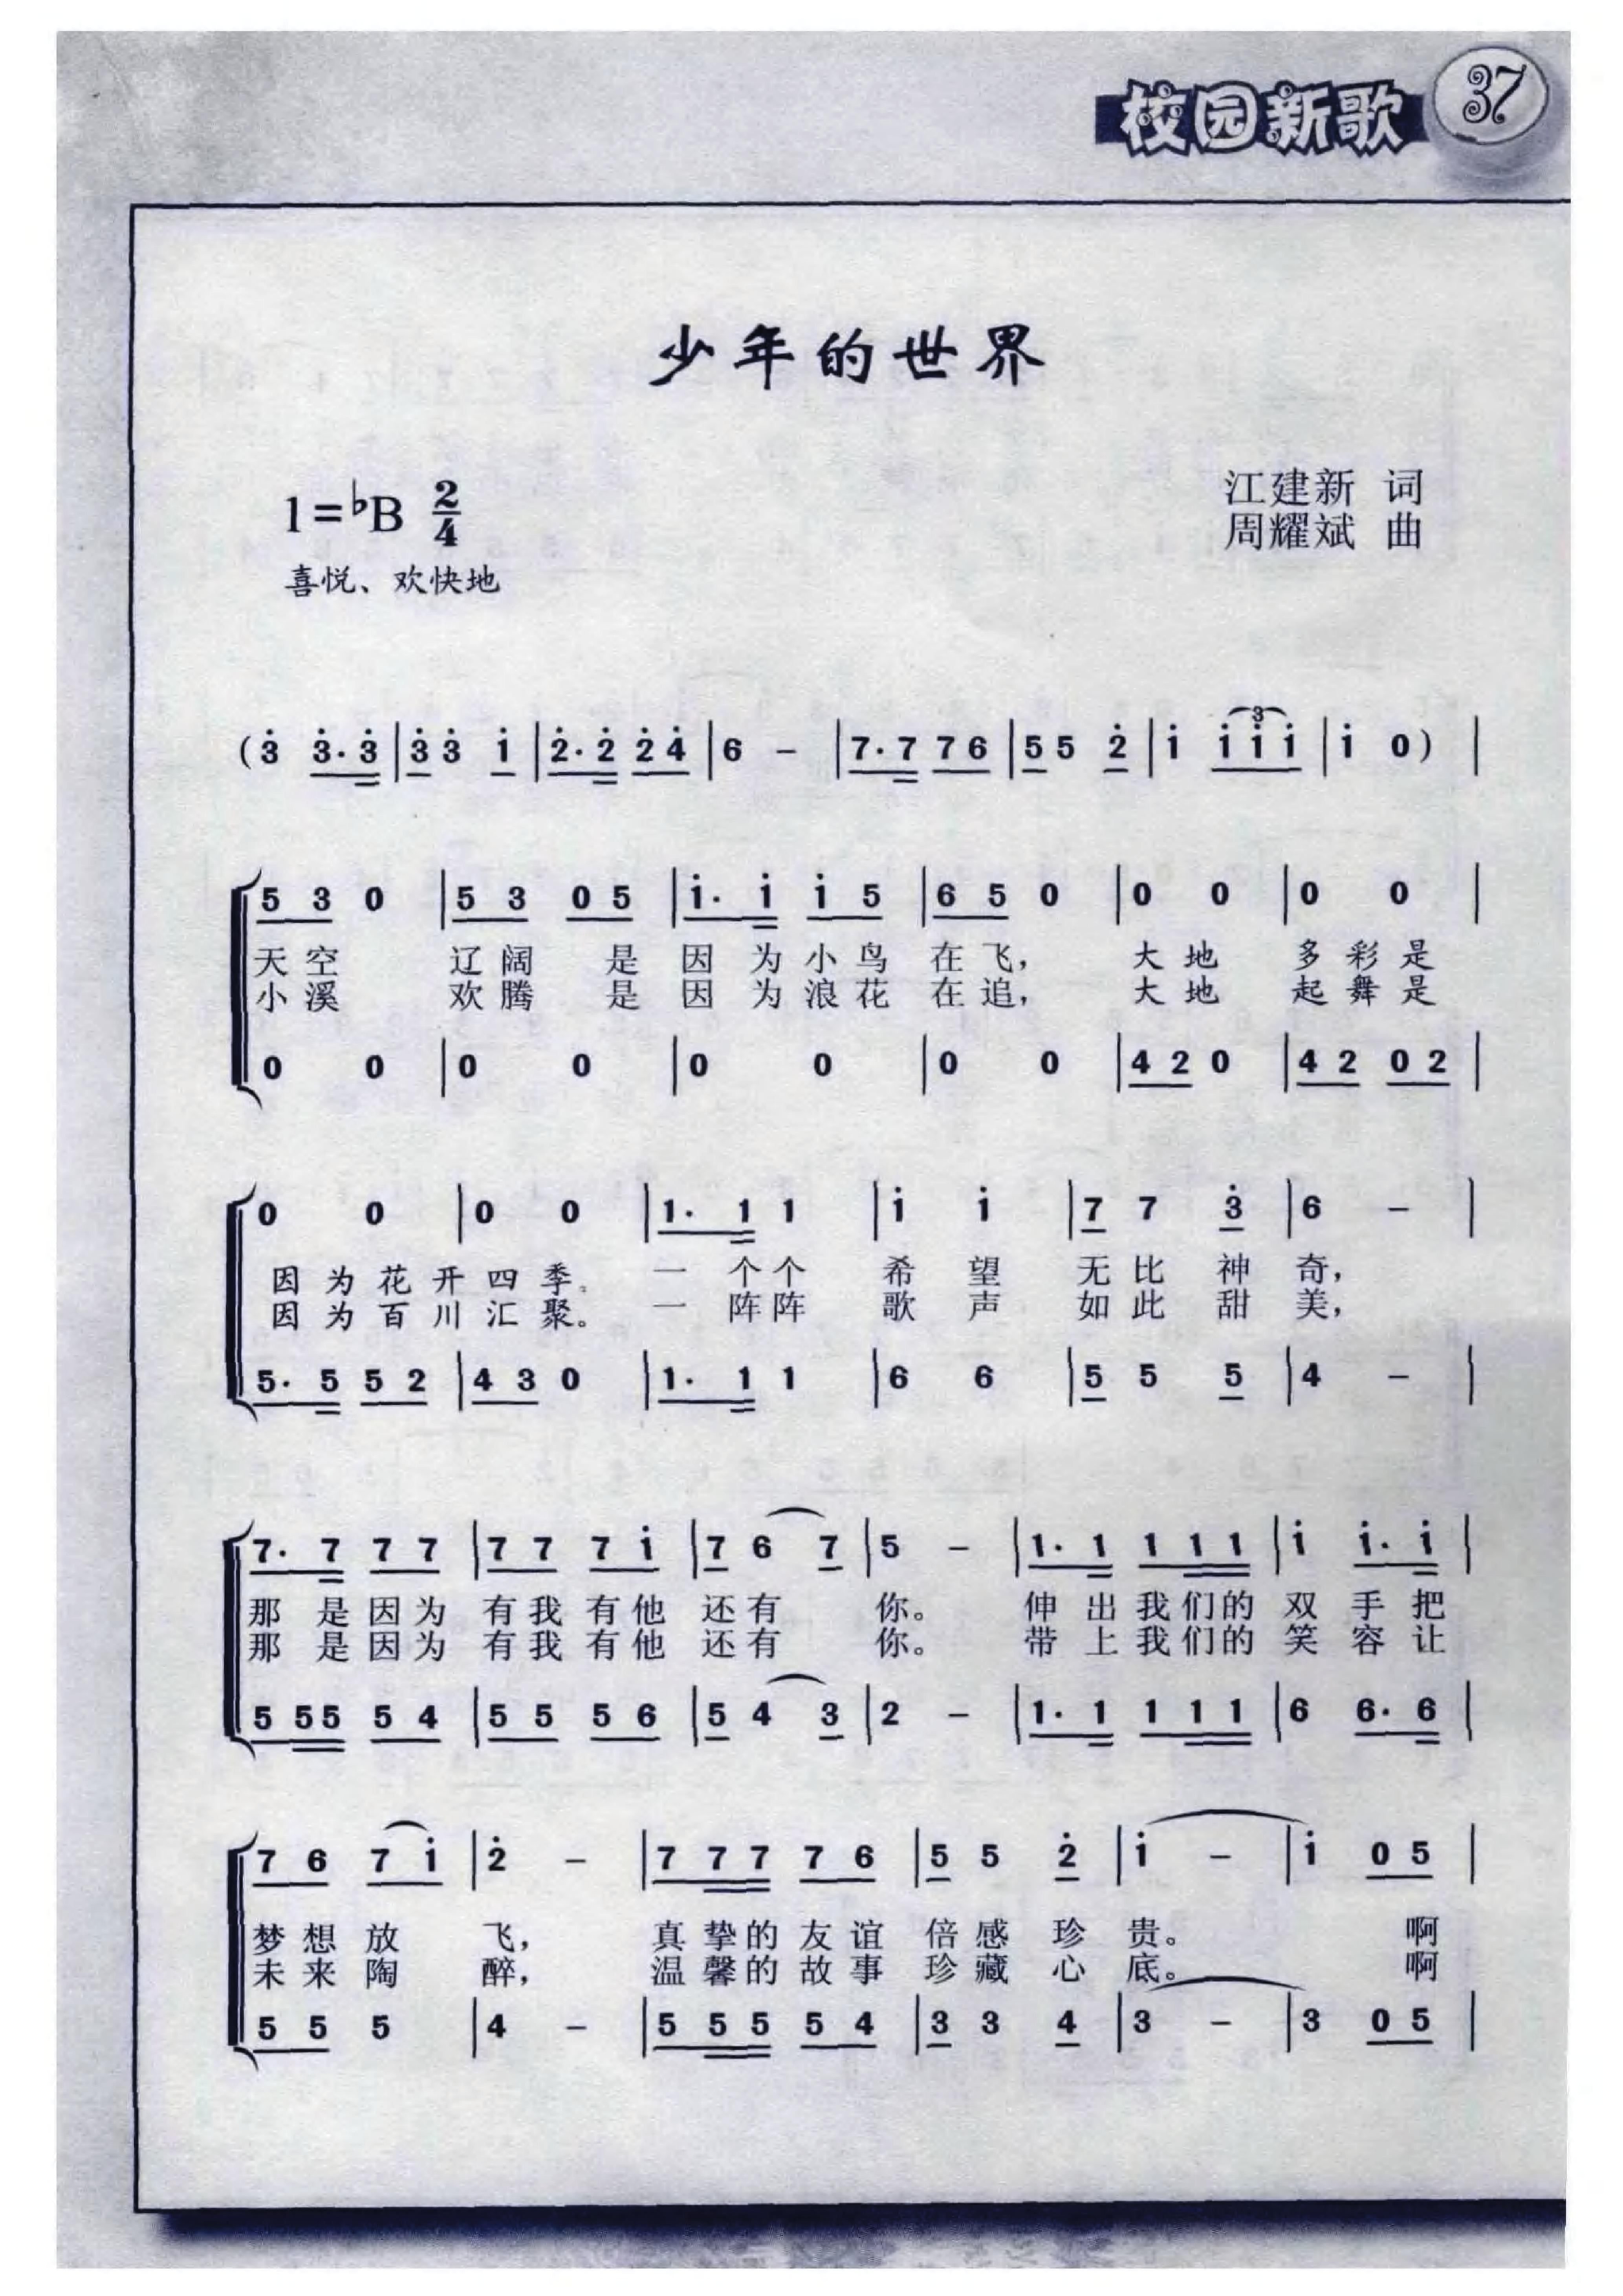 校园新歌 37
少年的世界
1=♭B 2/4
江建新 词
周耀斌 曲
喜悦、欢快地
(3̇ 3̇·3̇ | 3̇ 3̇ 1̇ | 2̇·2̇ 2̇ 4̇ | 6 - | 7·7 7 6 | 5 5 2̇ | 1̇ 3 1̇ 1̇ 1̇ | 1̇ 0) |
5 3 0 | 5 3 0 5 | 1̇· 1̇ 1̇ 5 | 6 5 0 | 0 0 | 0 0 |
天空 辽阔 是 因 为小鸟 在飞, 大地 多彩是
小溪 欢腾 是 因 为浪花 在追, 大地 起舞是
0 0 | 0 0 | 0 0 | 0 0 | 4 2 0 | 4 2 0 2 |
0 0 | 0 0 | 1· 1 1 | 1̇ 1̇ | 7 7 3̇ | 6 - |
因为花开四季。 一 个个 希望 无比 神 奇,
因为百川汇聚。 一 阵阵 歌声 如此 甜 美,
5· 5 5 2 | 4 3 0 | 1· 1 1 | 6 6 | 5 5 5 | 4 - |
7· 7 7 7 | 7 7 7 1̇ | 7 6 7 | 5 - | 1· 1 1 1 1 | 1̇ 1̇· 1̇ |
那 是因为 有我有他 还有 你。 伸 出我们的 双 手 把
那 是因为 有我有他 还有 你。 带 上我们的 笑 容 让
5 5 5 5 4 | 5 5 5 6 | 5 4 3 | 2 - | 1· 1 1 1 1 | 6 6· 6 |
7 6 7 1̇ | 2̇ - | 7 7 7 7 6 | 5 5 2̇ | 1̇ - | 1̇ 0 5 |
梦想放 飞, 真挚的友谊 倍感 珍 贵。 啊
未来陶 醉, 温馨的故事 珍藏 心 底。 啊
5 5 5 | 4 - | 5 5 5 5 4 | 3 3 4 | 3 - | 3 0 5 |